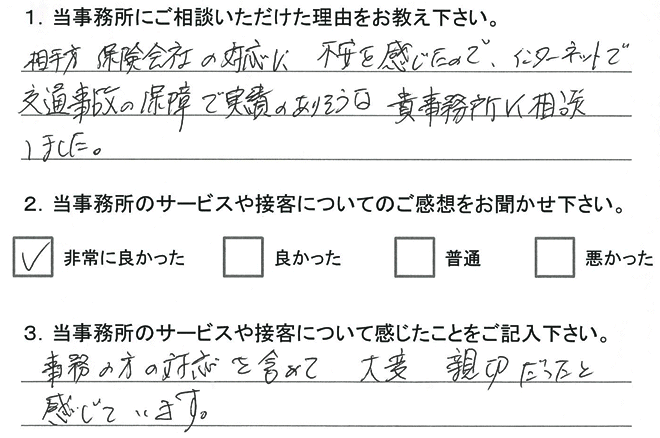 1. 当事務所にご相談いただけた理由をお教え下さい。
相手方 保険会社の対応に 不安を感じたので、インターネットで
交通事故の保障で実績のありそうな 貴事務所に相談
しました。
2. 当事務所のサービスや接客についてのご感想をお聞かせ下さい。
非常に良かった 良かった 普通 悪かった
3. 当事務所のサービスや接客について感じたことをご記入下さい。
事務の方の対応を含めて 大変 親切だったと
感じています。